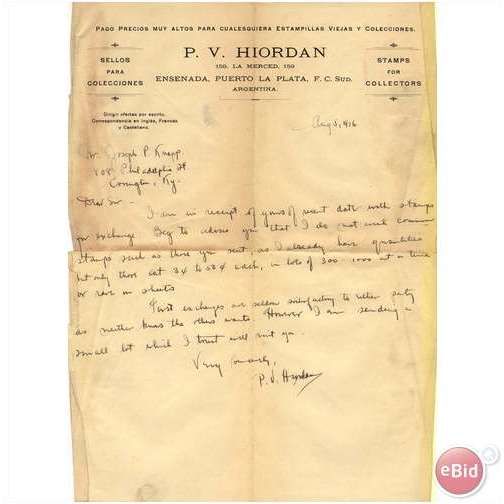 PAGO PRECIOS MUY ALTOS PARA CUALESQUIERA ESTAMPILLAS VIEJAS Y COLECCIONES.
P. V. HIORDAN
159, LA MERCED, 159
ENSENADA, PUERTO LA PLATA, F. C. SUD.
ARGENTINA.
SELLOS
PARA
COLECCIONES
STAMPS
FOR
COLLECTORS
Dirigir ofertas por escrito.
Correspondencia en inglés, Francés
y Castellano.
Aug 5, 1916
Mr. Joseph P. Knapp
808 Philadelphia St
Covington, Ky.
Dear Sir - I am in receipt of yours of recent date with stamps
for exchange Beg to advise you that I do not wish common
stamps such as those you sent, as I already have quantities
but only those cat 3¢ to 50¢ each, in lots of 300-1000 at a time
or rare in sheets
First exchanges are seldom satisfactory to either party
as neither knows the others wants However I am sending a
small lot which I trust will suit you.
Very sincerely,
P. V. Hiordan
eBid